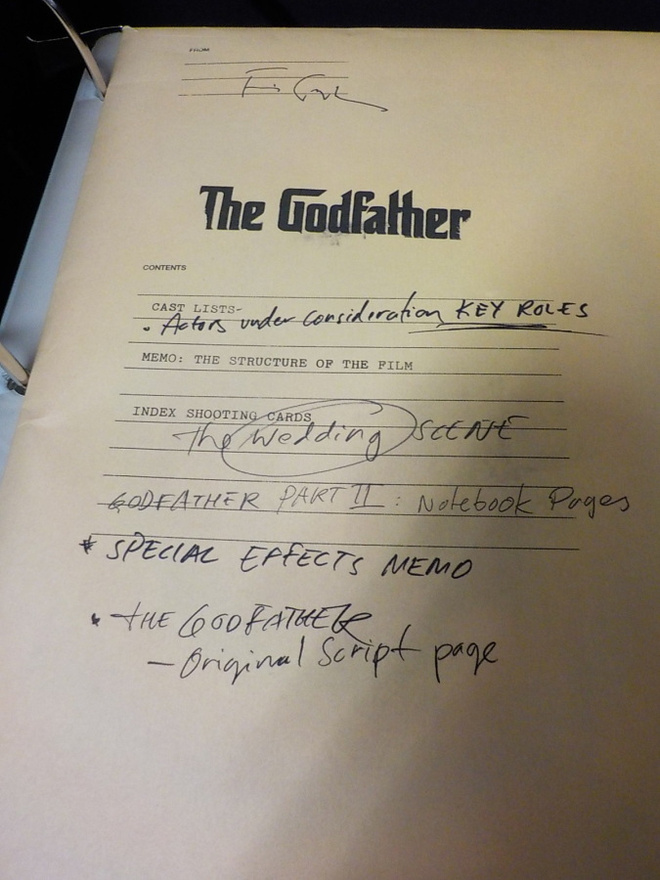 FROM
The Godfather
CONTENTS
CAST LISTS-
. Actors under consideration KEY ROLES
MEMO: THE STRUCTURE OF THE FILM
INDEX SHOOTING CARDS
The Wedding SCENE
GODFATHER PART II : Notebook Pages
* SPECIAL EFFECTS MEMO
. THE GODFATHER
— Original Script page